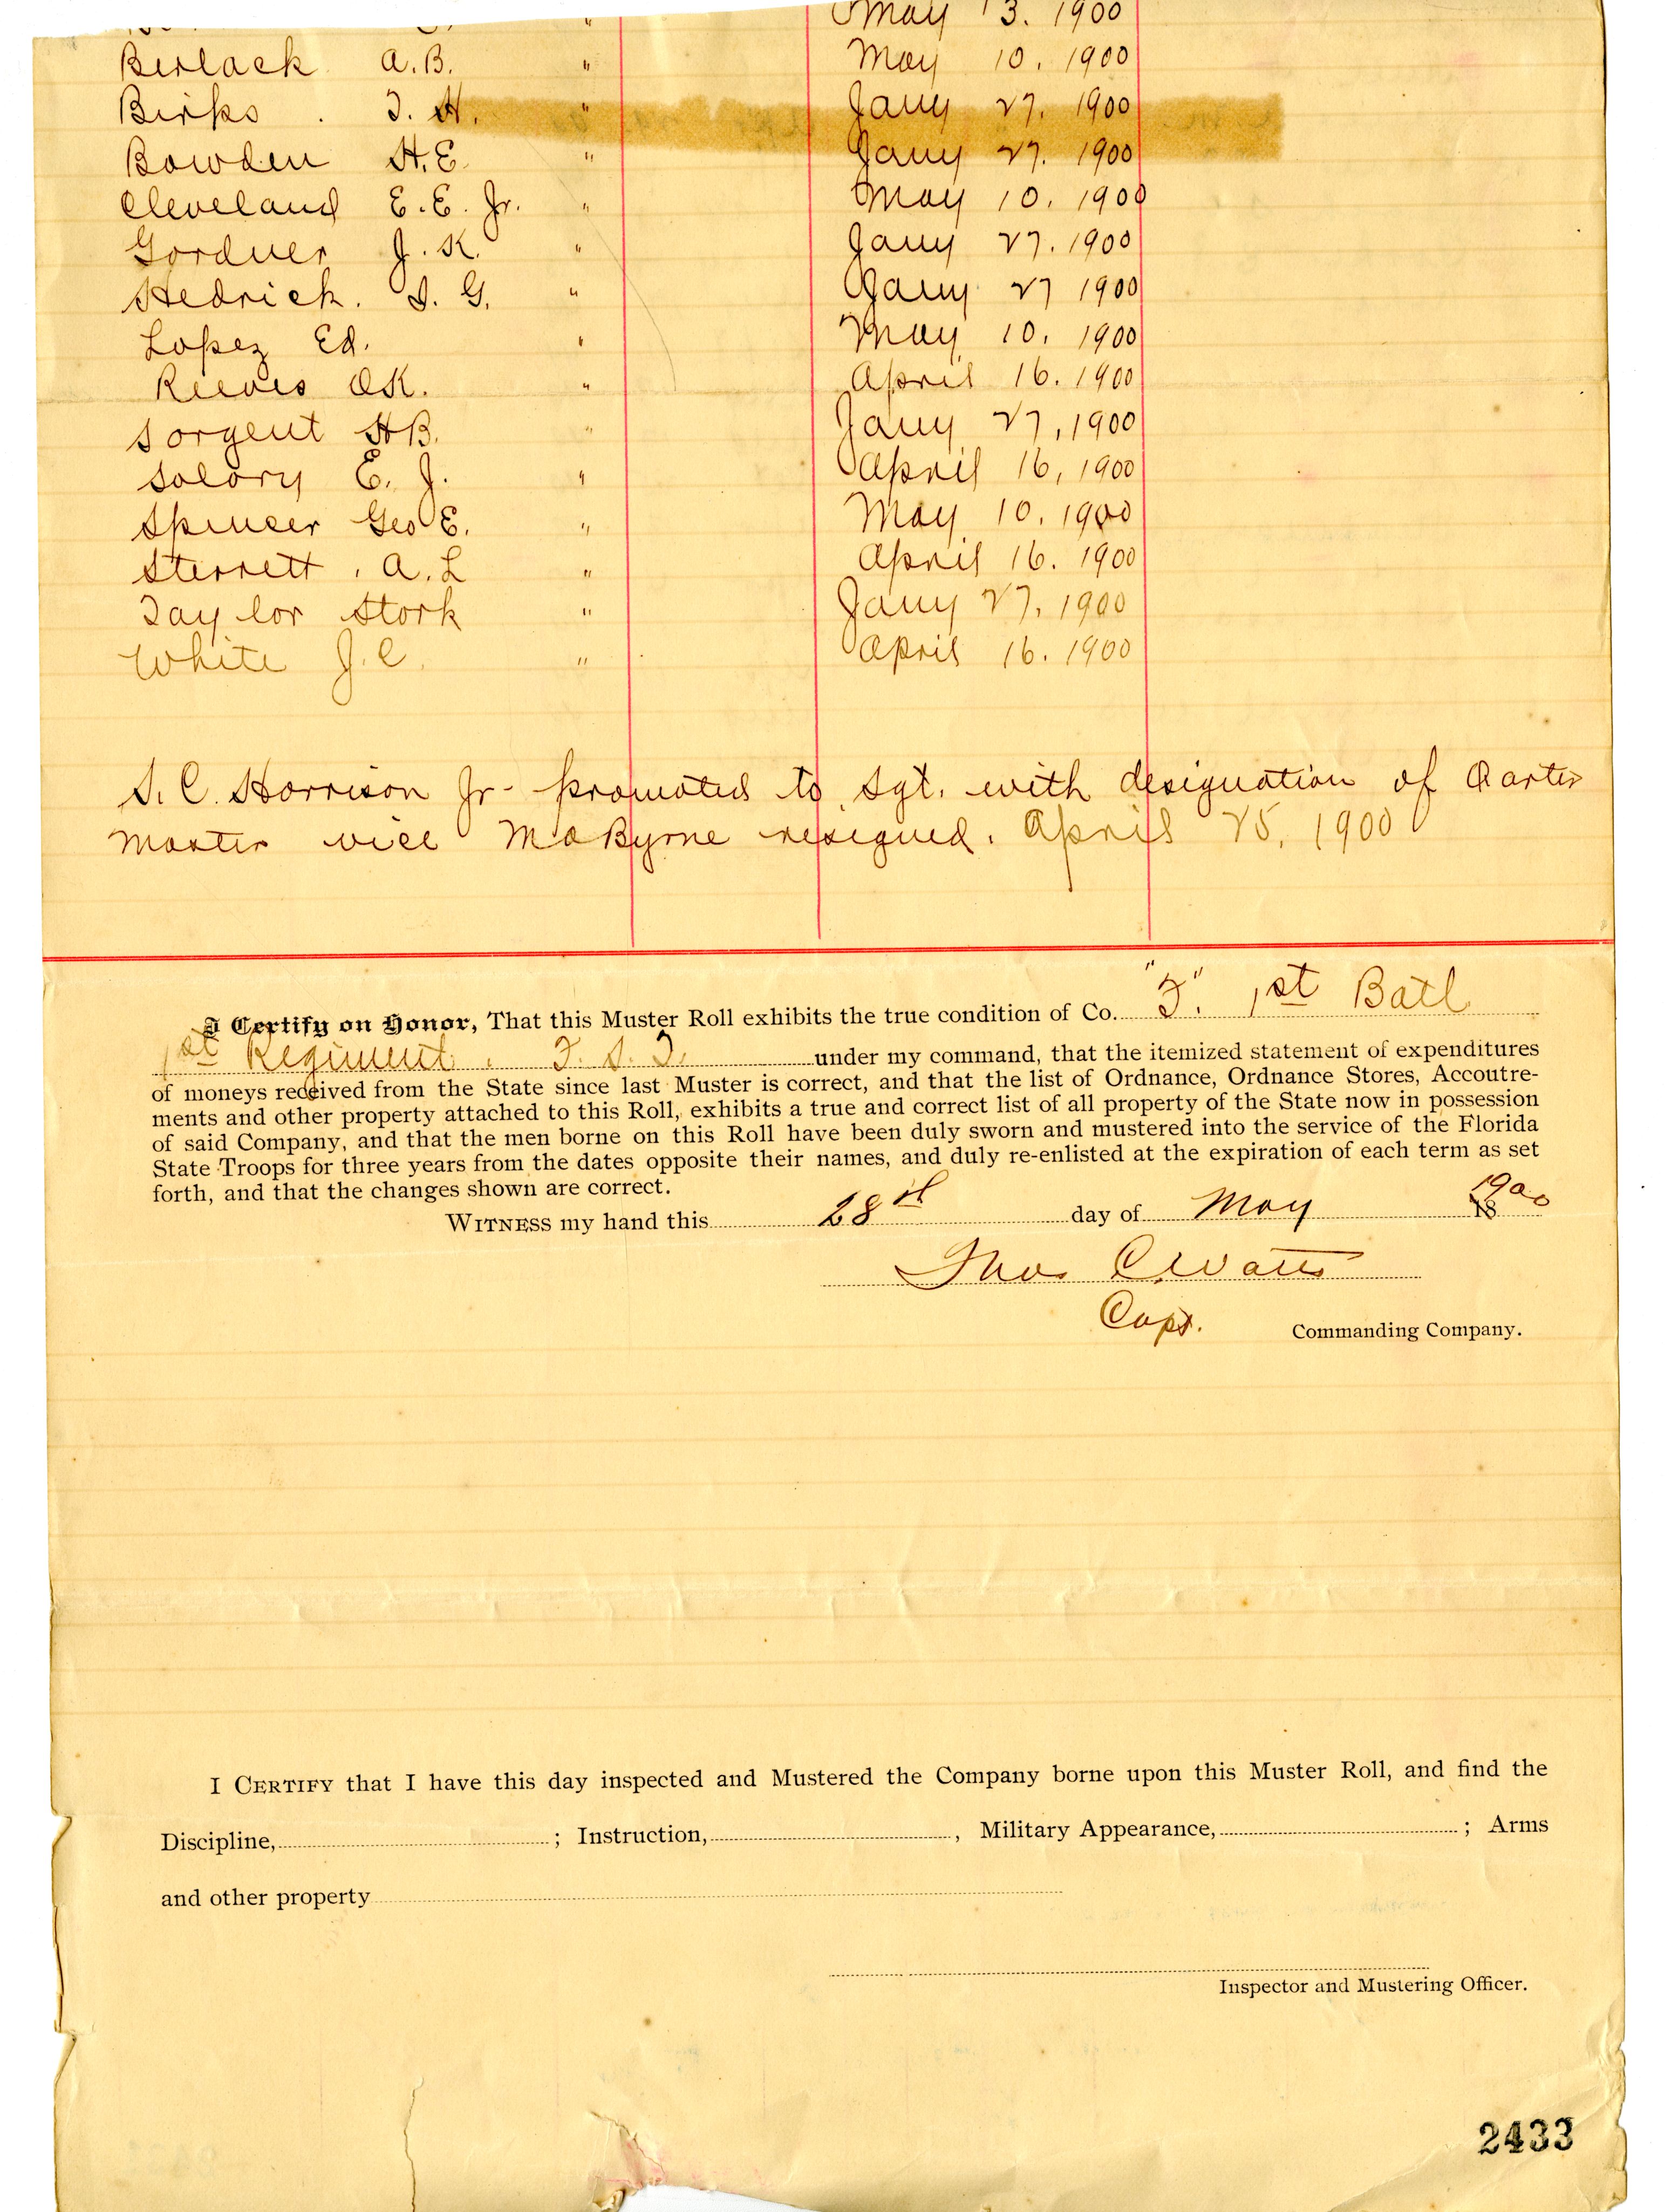 May 13. 1900
Berlack A.B. " May 10. 1900
Birks . T. H. " Jany 27. 1900
Bowden H.E. " Jany 27. 1900
Cleveland E.E. Jr. " May 10. 1900
Gordner J. K. " Jany 27. 1900
Hedrick. S. G. " Jany 27 1900
Lopez Ed. " May 10. 1900
Reeves O.K. " April 16. 1900
Sargent H B. " Jany 27, 1900
Salary E. J. " April 16, 1900
Spencer Geo E. " May 10. 1900
Sterrett . A. L " April 16. 1900
Taylor Stork " Jany 27. 1900
White J. C. " April 16. 1900
S. C. Harrison Jr - promoted to Sgt. with designation of Qarter
master vice McByrne resigned. April 25, 1900
I Certify on Honor, That this Muster Roll exhibits the true condition of Co. "F". 1st Batl
1st Regiment . F. S. T. under my command, that the itemized statement of expenditures
of moneys received from the State since last Muster is correct, and that the list of Ordnance, Ordnance Stores, Accoutre-
ments and other property attached to this Roll, exhibits a true and correct list of all property of the State now in possession
of said Company, and that the men borne on this Roll have been duly sworn and mustered into the service of the Florida
State Troops for three years from the dates opposite their names, and duly re-enlisted at the expiration of each term as set
forth, and that the changes shown are correct.
WITNESS my hand this 28th day of May 18 1900
Thos C. Watts
Capt. Commanding Company.
I CERTIFY that I have this day inspected and Mustered the Company borne upon this Muster Roll, and find the
Discipline, ; Instruction, , Military Appearance, ; Arms
and other property
Inspector and Mustering Officer.
2433